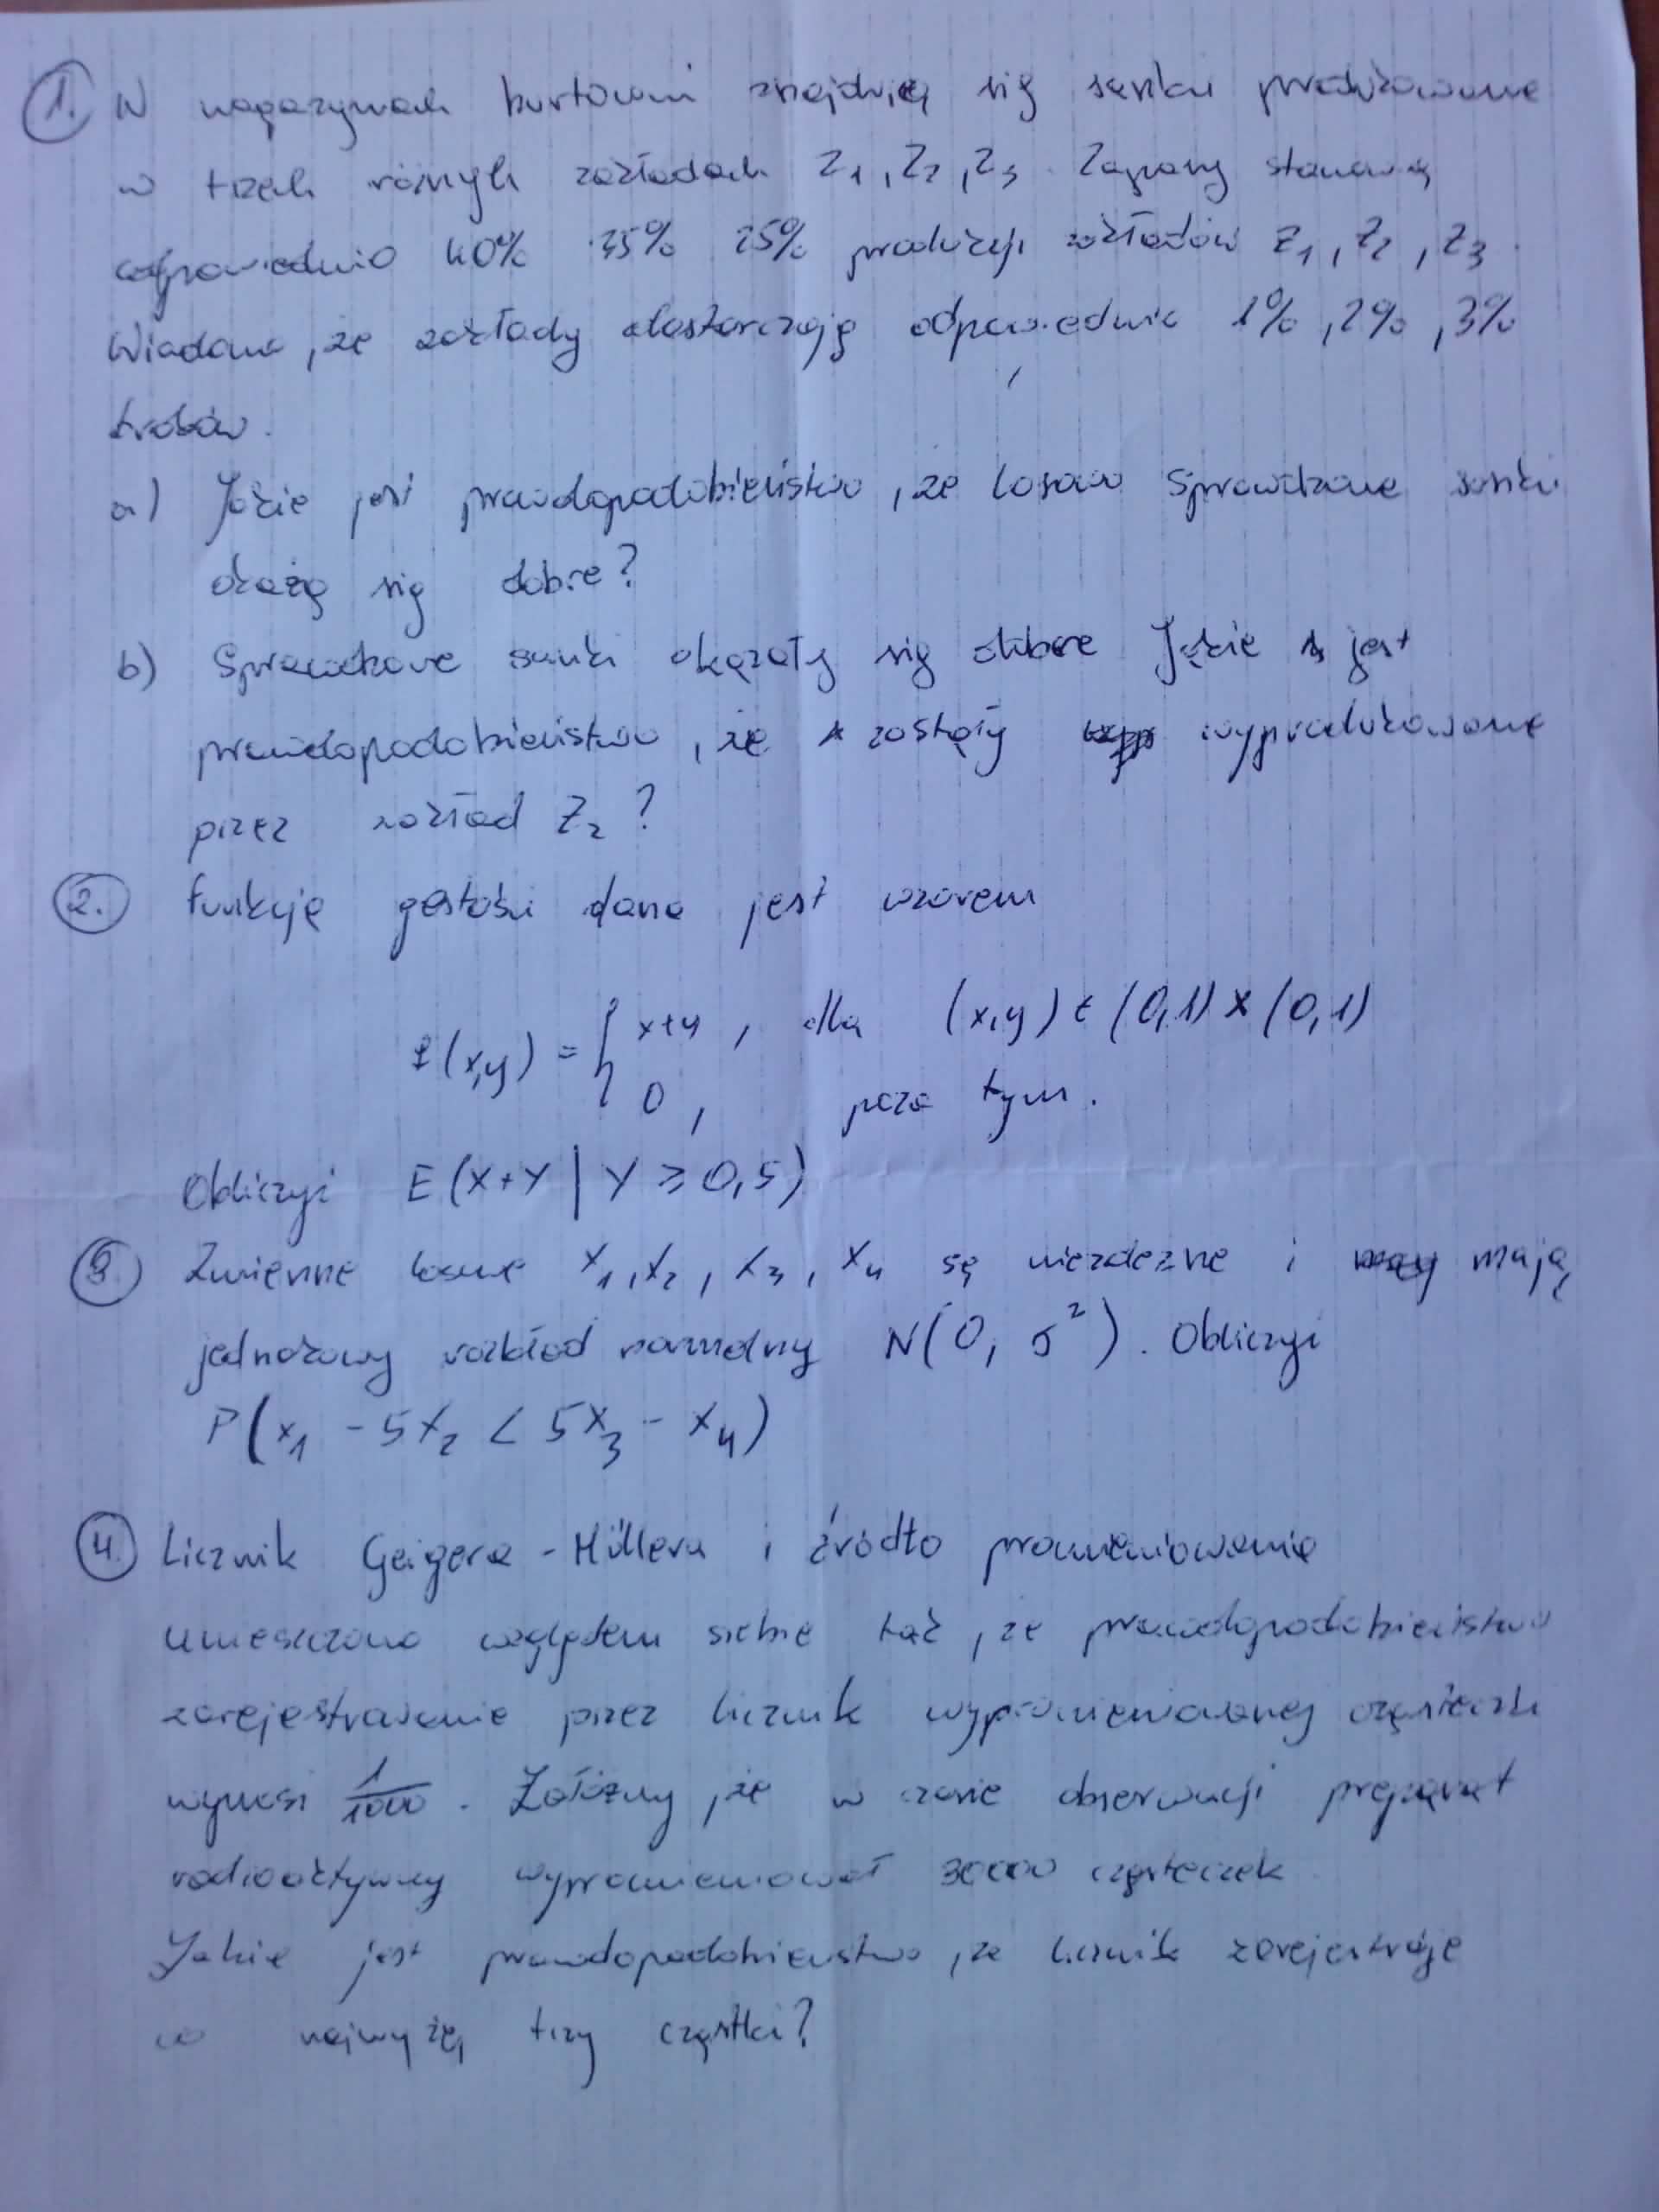 1. W magazynach hurtowni znajdują się sanki produkowane
w trzech różnych zakładach Z1, Z2, Z3. Zapasy stanowią
odpowiednio 40% 35% 25% produkcji zakładów Z1, Z2, Z3.
Wiadomo, że zakłady dostarczają odpowiednio 1%, 2%, 3%
braków.
a) Jakie jest prawdopodobieństwo, że losowo sprawdzone sanki
okażą się dobre?
b) Sprawdzone sanki okazały się dobre Jakie jest
prawdopodobieństwo, że zostały wyprodukowane
przez zakład Z2?
2. Funkcja gęstości dana jest wzorem
f(x,y) = { x+y, dla (x,y) ∈ (0,1) x (0,1)
0, poza tym.
Obliczyć E(X+Y | Y ≥ 0,5)
3. Zmienne losowe X1, X2, X3, X4 są niezależne i mają
jednakowy rozkład normalny N(0, σ²). Obliczyć
P(X1 - 5X2 < 5X3 - X4)
4. Licznik Geigera - Müllera i źródło promieniowania
umieszczono względem siebie tak, że prawdopodobieństwo
zarejestrowania przez licznik wypromieniowanej cząsteczki
wynosi 1/1000. Załóżmy, że w czasie obserwacji preparat
radioaktywny wypromieniował 30000 cząsteczek.
Jakie jest prawdopodobieństwo, że licznik zarejestruje
co najwyżej trzy cząstki?